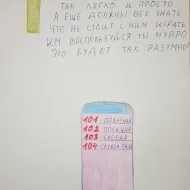 ТАК ЛЕГКО И ПРОСТО
А ЕЩЁ ДОЛЖНЫ ВСЕ ЗНАТЬ
ЧТО НЕ СТОИТ С НИМ ИГРАТЬ
ИМ ВОСПОЛЬЗУЙСЯ ТЫ МУДРО
ЭТО БУДЕТ ТАК РАЗУМНО!
101 - ПОЖАРНАЯ
102 ПОЛИЦИЯ
103 СКОРАЯ
104 СЛУЖБА ГАЗА